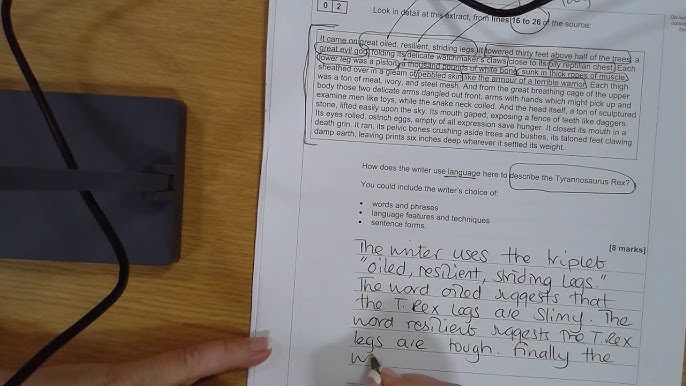 0 2
Look in detail at this extract, from lines 16 to 26 of the source:
It came on great oiled, resilient, striding legs. It towered thirty feet above half of the trees, a
great evil god, folding its delicate watchmaker's claws close to its oily reptilian chest. Each
lower leg was a piston, a thousand pounds of white bone, sunk in thick ropes of muscle,
sheathed over in a gleam of pebbled skin like the armour of a terrible warrior. Each thigh
was a ton of meat, ivory, and steel mesh. And from the great breathing cage of the upper
body those two delicate arms dangled out front, arms with hands which might pick up and
examine men like toys, while the snake neck coiled. And the head itself, a ton of sculptured
stone, lifted easily upon the sky. Its mouth gaped, exposing a fence of teeth like daggers.
Its eyes rolled, ostrich eggs, empty of all expression save hunger. It closed its mouth in a
death grin. It ran, its pelvic bones crushing aside trees and bushes, its taloned feet clawing
damp earth, leaving prints six inches deep wherever it settled its weight.
How does the writer use language here to describe the Tyrannosaurus Rex?
You could include the writer's choice of:
• words and phrases
• language features and techniques
• sentence forms.
[8 marks]
The writer uses the triplet
"oiled, resilient, striding legs."
The word oiled suggests that
the T.Rex legs are slimy. The
word resilient suggests the T.Rex
legs are tough. Finally the